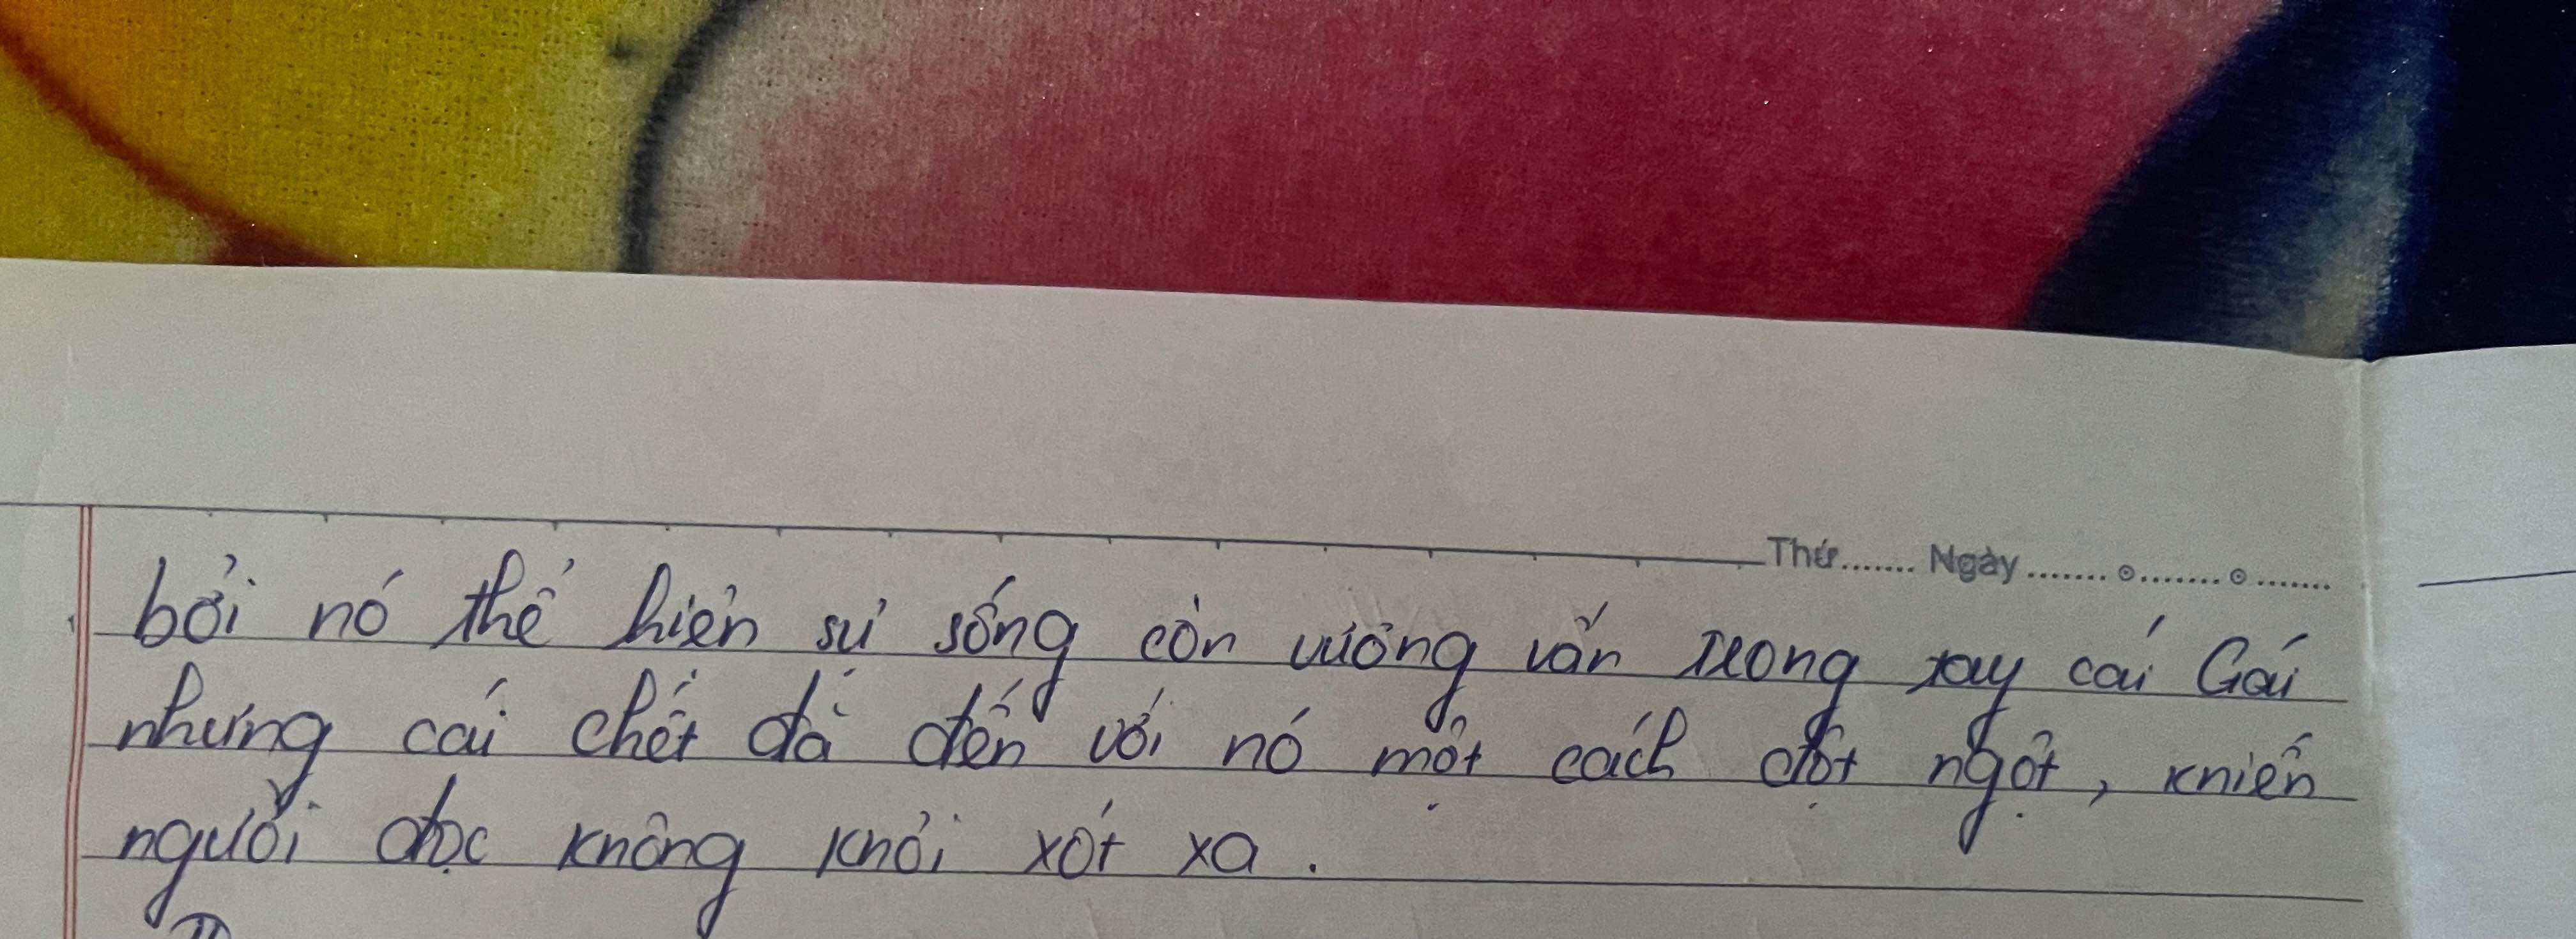 Thứ....... Ngày.................
bởi nó thể hiện sự sống còn vướng vấn trong tay cái Gái
nhưng cái chết đã đến với nó một cách đột ngột, khiến
người đọc không khỏi xót xa.